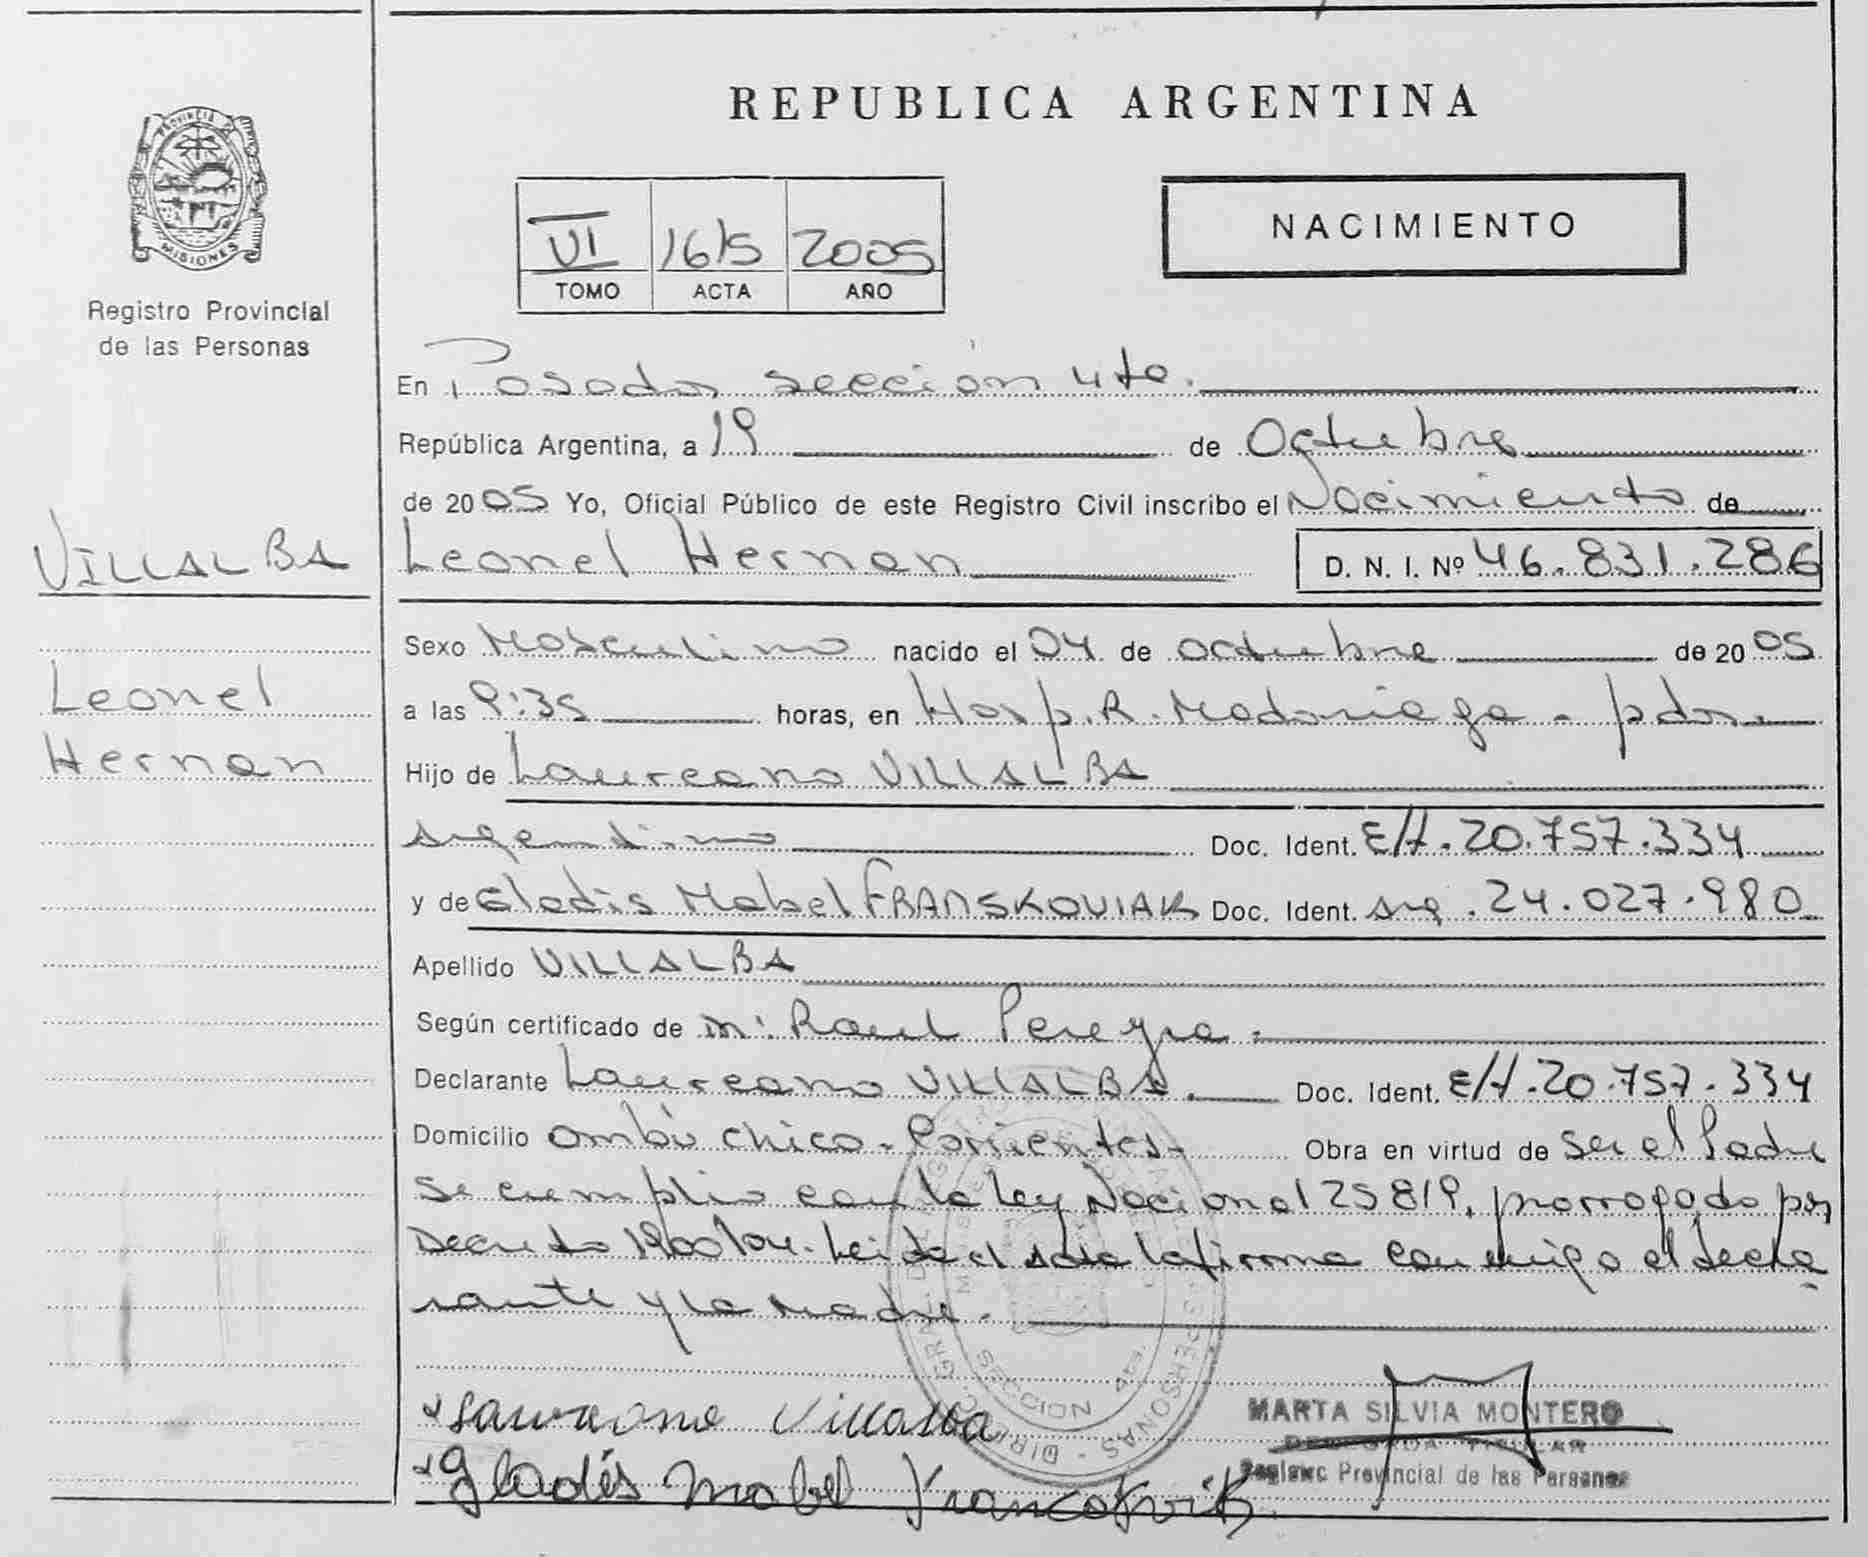 REPUBLICA ARGENTINA
PROVINCIA DE MISIONES
Registro Provincial
de las Personas
VI 1615 2005
TOMO ACTA AÑO
NACIMIENTO
En Posadas sección 4ta.
República Argentina, a 19 de Octubre
de 2005 Yo, Oficial Público de este Registro Civil inscribo el Nacimiento de
VILLALBA
Leonel Hernan D. N. I. Nº 46.831.286
Leonel
Hernan
Sexo Masculino nacido el 04 de octubre de 2005
a las 9:35 horas, en Hosp. R. Madariaga - pdas
Hijo de Laureano VILLALBA
argentino Doc. Ident. E/H. 20.757.334
y de Gladis Mabel FRANSKOVIAK Doc. Ident. arg. 24.027.980
Apellido VILLALBA
Según certificado de m: Raul Pereyra.
Declarante Laureano VILLALBA. Doc. Ident. E/H. 20.757.334
Domicilio Ombú chico - Corrientes - Obra en virtud de Ser el Padre
Se cumplio con la Ley Nacional 25819, prorrogado por
Decreto 1900/04. Leida el acta la firma conmigo el decla
rante y la madre.
SECCION 4ta.
Laureano Villalba
Gladés Mabel
MARTA SILVIA MONTERO
DELEGADA TITULAR
Provincial de las Personas